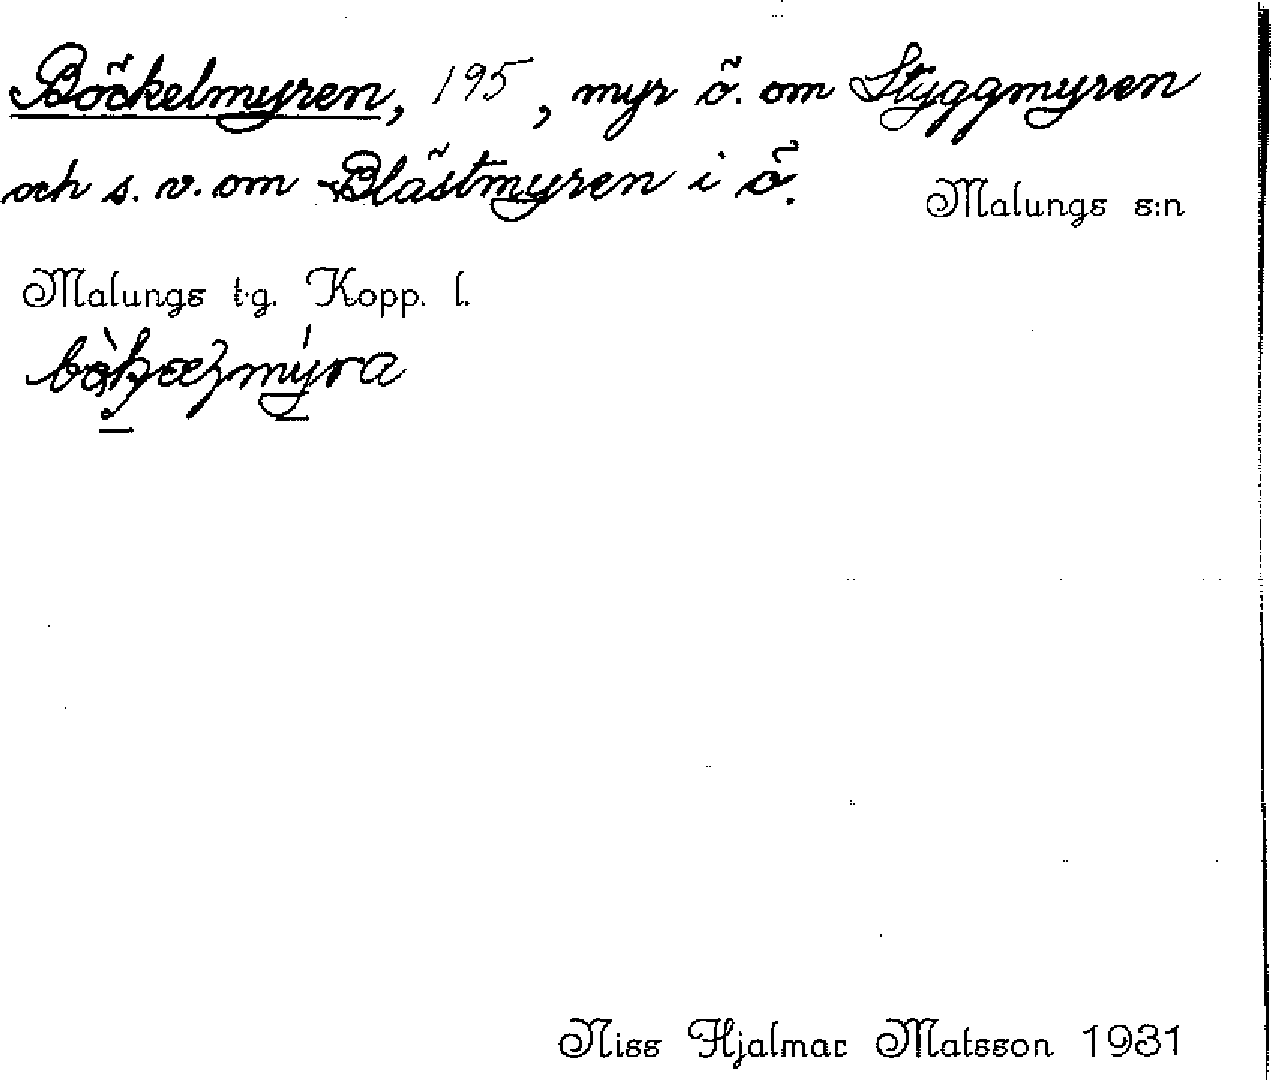 Böckelmyren, 195, myr ö. om Styggmyren
och s. v. om Blästmyren i ö.
Malungs s:n
Malungs t.g. Kopp. l.
Niss Hjalmar Matsson 1931